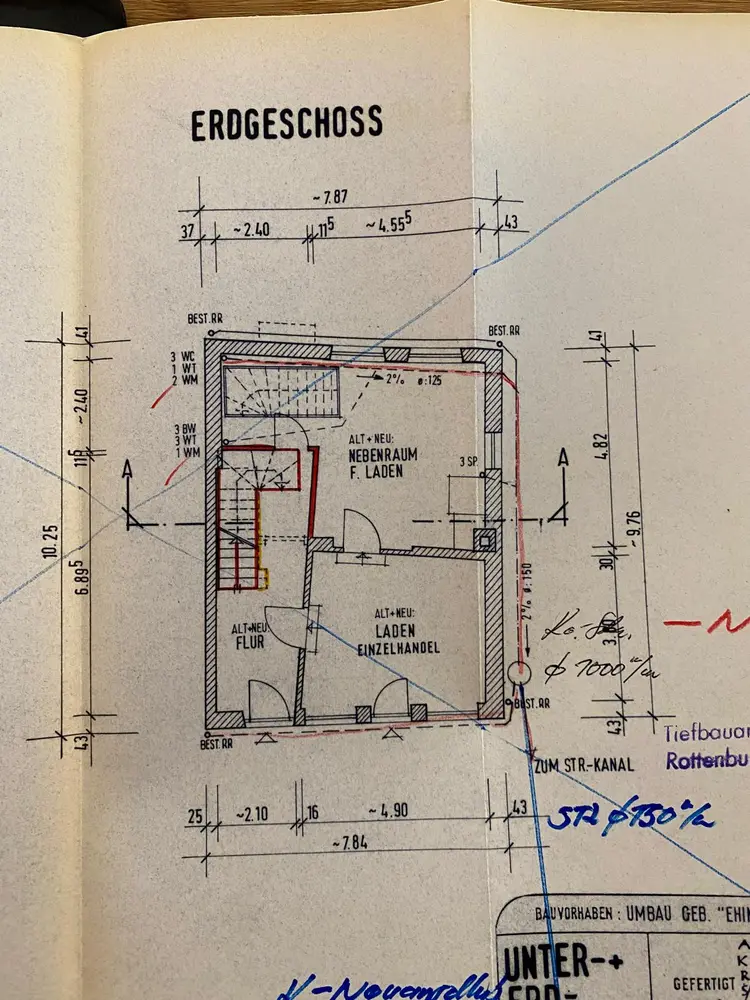 ERDGESCHOSS
~7.87
37 ~2.40 11⁵ ~4.55⁵ 43
BEST. RR
BEST. RR
41
41
3 WC
1 WT
2 WM
2% ø:125
~2.40
3 BW
3 WT
1 WM
ALT+NEU:
NEBENRAUM
F. LADEN
3 SP.
4.82
11⁵
A
A
10.25
~9.76
6.89⁵
30
2% ø:150
ALT+NEU:
FLUR
ALT+NEU:
LADEN
EINZELHANDEL
ø 1000
BEST.RR
43
43
BEST. RR
Tiefbauam
Rottenbu
ZUM STR.-KANAL
25 ~2.10 16 ~4.90 43
~7.84
STZ ø 150
BAUVORHABEN : UMBAU GEB. "EHIN
UNTER-+
ERD-
GEFERTIGT